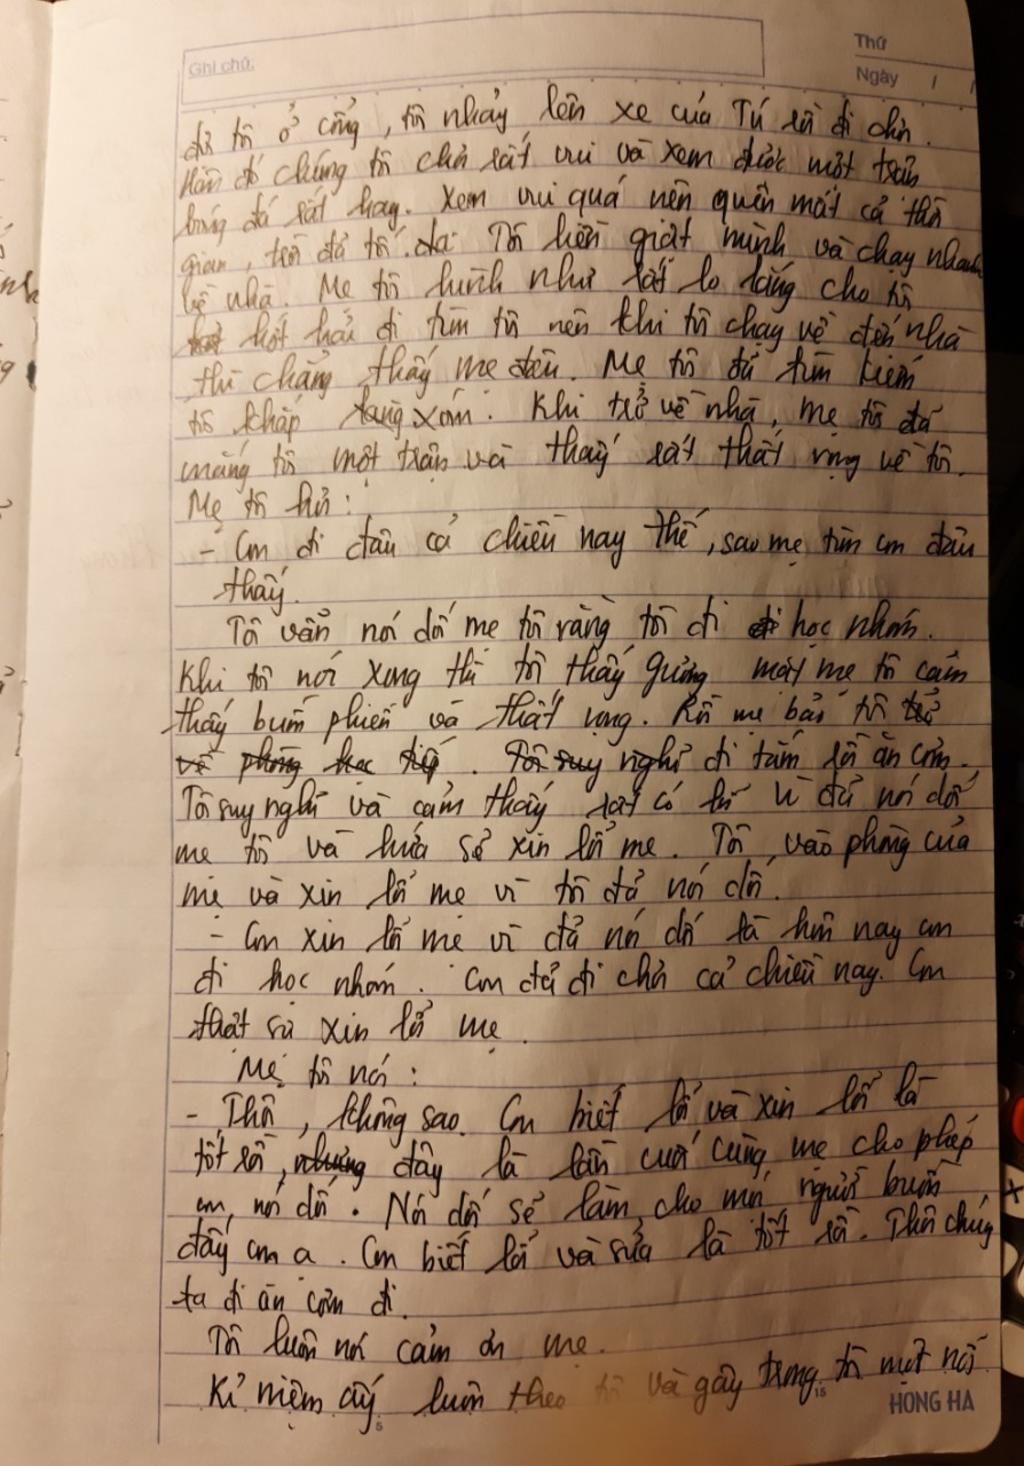 Ghi chú:
Thứ
Ngày / /
đã tôi ở cổng, tôi nhảy lên xe của Tú rồi đi chơi.
Hôm đó chúng tôi chơi rất vui và xem được một trận
bóng đá rất hay. Xem vui quá nên quên mất cả thời
gian, trời đã tối. Tôi liền giật mình và chạy nhanh
về nhà. Mẹ tôi hình như rất lo lắng cho tôi
hớt hải đi tìm tôi nên khi tôi chạy về đến nhà
thì chẳng thấy mẹ đâu. Mẹ tôi đã tìm kiếm
tôi khắp làng xóm. Khi trở về nhà, mẹ tôi đã
mắng tôi một trận và thấy rất thất vọng về tôi.
Mẹ tôi hỏi:
- Con đi đâu cả chiều nay thế, sao mẹ tìm con đâu
thấy.
Tôi vẫn nói dối mẹ tôi rằng tôi đi học nhóm.
Khi tôi nói xong thì tôi thấy gương mặt mẹ tôi cảm
thấy buồn phiền và thất vọng. Rồi mẹ bảo tôi
đi tắm rồi ăn cơm.
Tôi suy nghĩ và cảm thấy rất có lỗi vì đã nói dối
mẹ tôi và hứa sẽ xin lỗi mẹ. Tôi vào phòng của
mẹ và xin lỗi mẹ vì tôi đã nói dối.
- Con xin lỗi mẹ vì đã nói dối là hôm nay con
đi học nhóm. Con đã đi chơi cả chiều nay. Con
thật sự xin lỗi mẹ.
Mẹ tôi nói:
- Thôi, không sao. Con biết lỗi và xin lỗi là
tốt rồi, đây là lần cuối cùng mẹ cho phép
con nói dối. Nói dối sẽ làm cho mọi người buồn
đấy con ạ. Con biết lỗi và sửa là tốt rồi. Thôi chúng
ta đi ăn cơm đi.
Tôi luôn nói cảm ơn mẹ.
Kỉ niệm ấy luôn theo tôi và gây trong tôi một nỗi
5
15
HONG HA